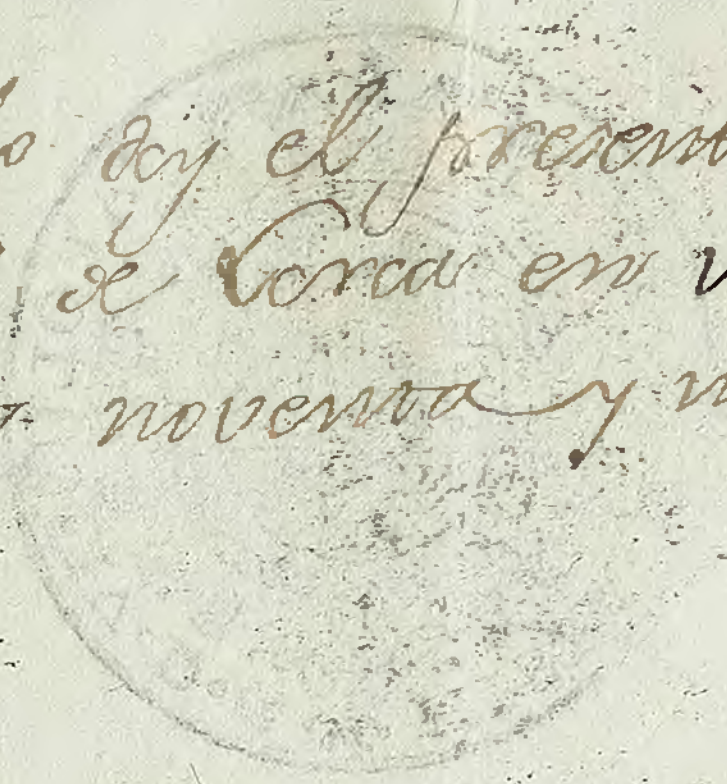 lo doy el present
de Lorca en v
noventa y n